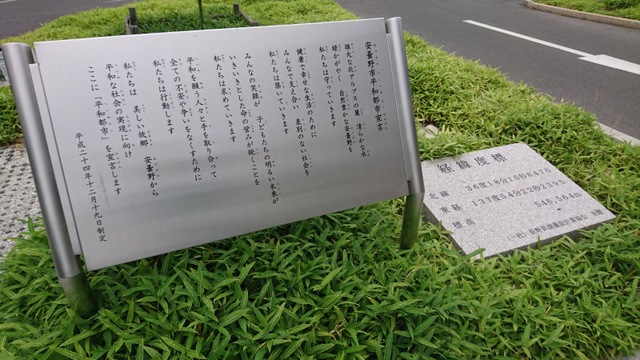 安曇野市平和都市宣言
雄大な北アルプスの麓 清らかな水
緑かがやく 自然豊かな安曇野を
私たちは守っていきます
健康で幸せな生活のために
みんなで支え合い 差別のない社会を
私たちは築いていきます
みんなの笑顔が 子どもたちの明るい未来が
いきいきとした命の営みが続くことを
私たちは求めていきます
平和を願う人々と手を取り合って
全ての不安や争いをなくすために
私たちは行動します
私たちは 美しい故郷 安曇野から
平和な社会の実現に向け
ここに「平和都市」を宣言します
平成二十四年十二月十九日制定
経緯度標
北緯 36度18分
東経 137度54分
標点 546.564m